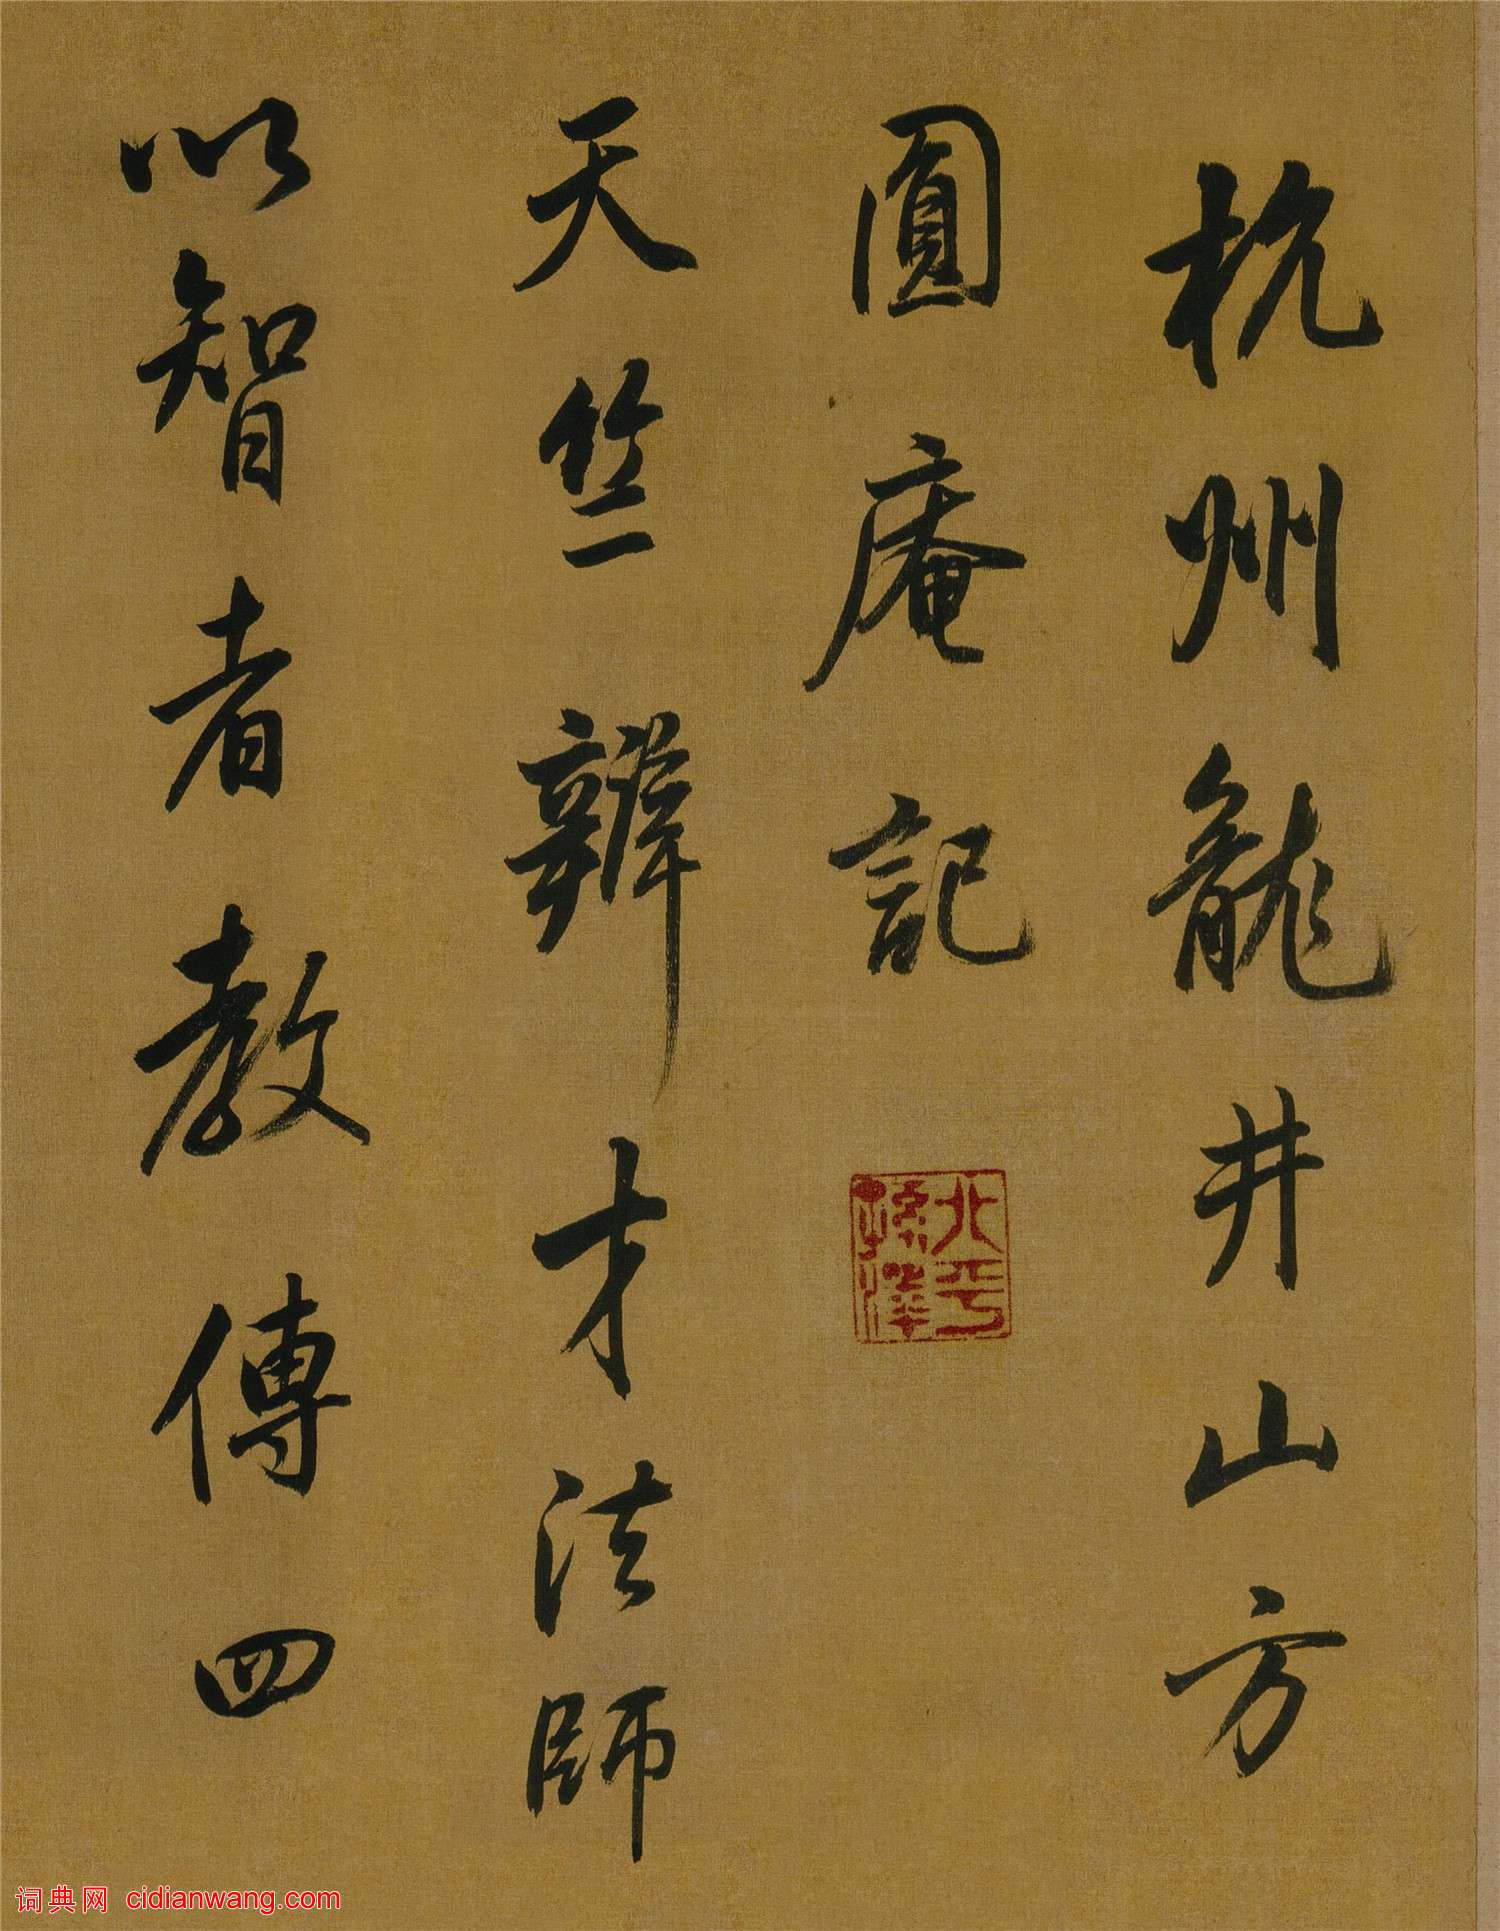 杭州龍井山方
圓庵記
天竺辯才法師
以智者教傳四
北平
孫澤
词典网 cidianwang.com